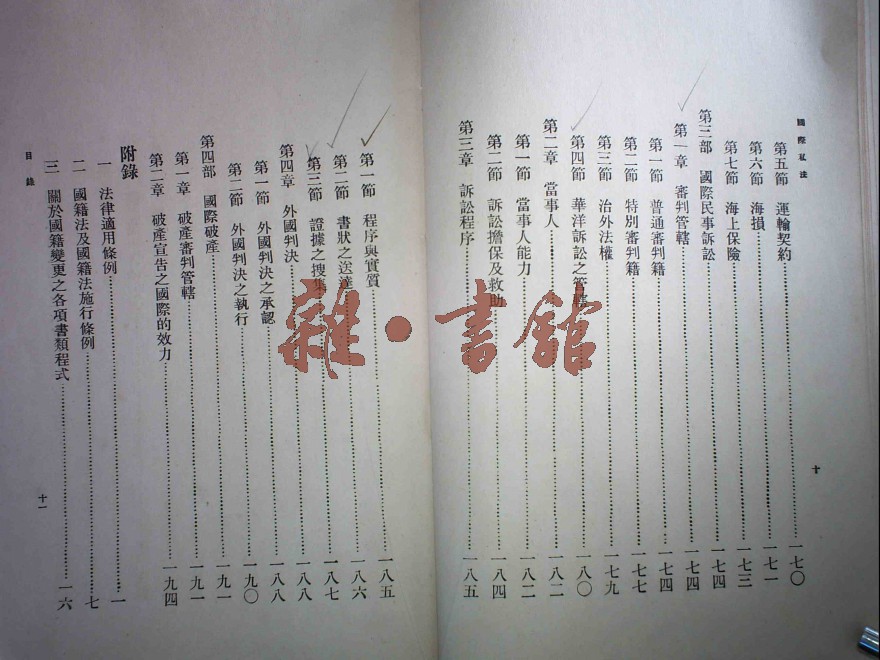 國際私法
第五節 運輸契約…………一七〇
第六節 海損…………一七一
第七節 海上保險…………一七三
第三部 國際民事訴訟…………一七四
第一章 審判管轄…………一七四
第一節 普通審判籍…………一七四
第二節 特別審判籍…………一七七
第三節 治外法權…………一七九
第四節 華洋訴訟之管轄…………一八〇
第二章 當事人…………一八二
第一節 當事人能力…………一八二
第二節 訴訟擔保及救助…………一八四
第三章 訴訟程序…………一八五
十
第一節 程序與實質…………一八五
第二節 書狀之送達…………一八六
第三節 證據之搜集…………一八七
第四章 外國判決…………一八八
第一節 外國判決之承認…………一八八
第二節 外國判決之執行…………一九〇
第四部 國際破產…………一九一
第一章 破產審判管轄…………一九一
第二章 破產宣告之國際的效力…………一九四
附錄
一 法律適用條例…………一
二 國籍法及國籍法施行條例…………七
三 關於國籍變更之各項書類程式…………一六
目錄
十一
雜·書館